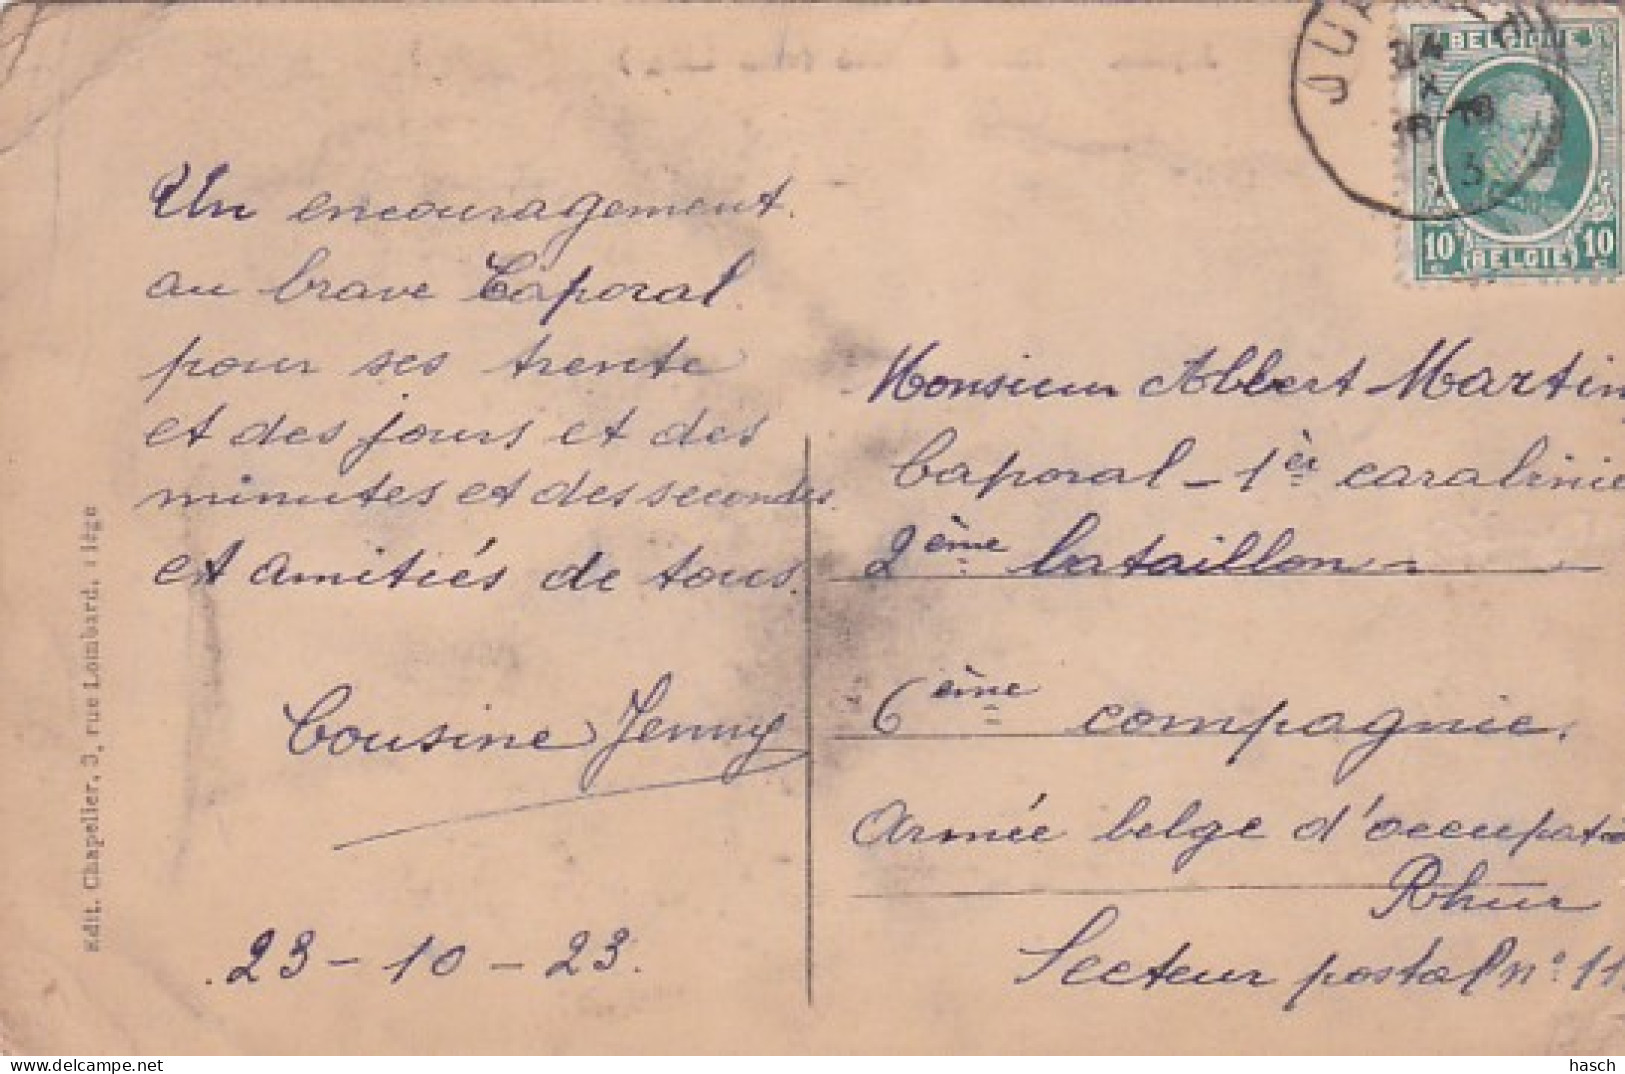 Un encouragement.
au brave Caporal.
pour ses trente
et des jours et des
minutes et des secondes.
et amitiés de tous.
Cousine Jenny
23-10-23.
Edit. Chapelier, 3, rue Lombard, Liége
24
X
18
BELGIQUE
10 BELGIE 10
Monsieur Albert Martin,
Caporal - 1er carabinie
2ème bataillon
6ème compagnie.
Armée belge d'occupatio
Rhur
Secteur postal n° 11
delcampe.net
hasch